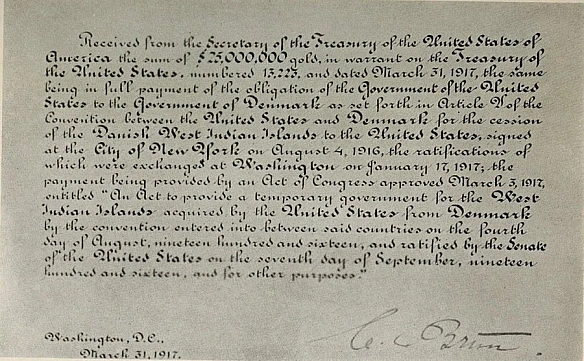 Received from the Secretary of the Treasury of the United States of
America the sum of $25,000,000 gold, in warrant on the Treasury of
the United States, numbered 13,223, and dated March 31, 1917, the same
being in full payment of the obligation of the Government of the United
States to the Government of Denmark as set forth in Article V of the
Convention between the United States and Denmark for the cession
of the Danish West Indian Islands to the United States, signed
at the City of New York on August 4, 1916, the ratifications of
which were exchanged at Washington on January 17, 1917; the
payment being provided by an Act of Congress approved March 3, 1917,
entitled "An Act to provide a temporary government for the West
Indian Islands acquired by the United States from Denmark
by the convention entered into between said countries on the fourth
day of August, nineteen hundred and sixteen, and ratified by the Senate
of the United States on the seventh day of September, nineteen
hundred and sixteen, and for other purposes."
C. C. Brun
Washington, D.C.,
March 31, 1917.